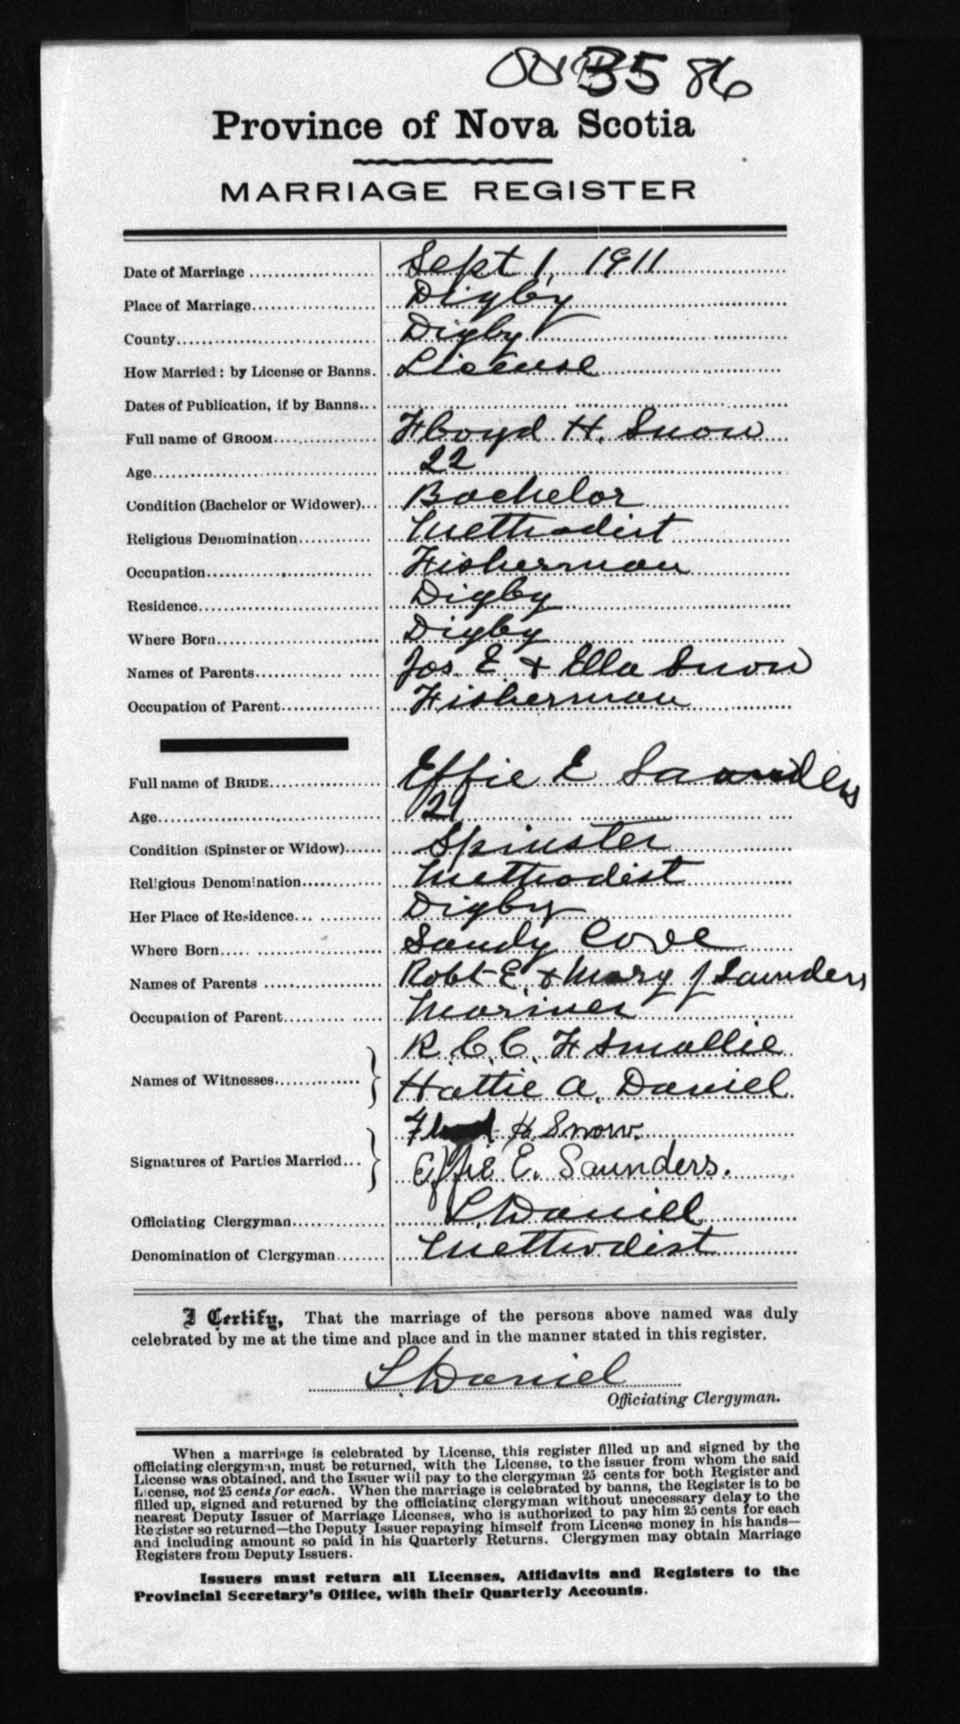 3586
Province of Nova Scotia
MARRIAGE REGISTER
Date of Marriage Sept 1, 1911
Place of Marriage Digby
County Digby
How Married: by License or Banns. License
Dates of Publication, if by Banns
Full name of GROOM Floyd H. Snow
Age 22
Condition (Bachelor or Widower) Bachelor
Religious Denomination Methodist
Occupation Fisherman
Residence Digby
Where Born Digby
Names of Parents Jos. E. & Ella Snow
Occupation of Parent Fisherman
Full name of BRIDE Effie E Saunders
Age 21
Condition (Spinster or Widow) Spinster
Religious Denomination Methodist
Her Place of Residence Digby
Where Born Sandy Cove
Names of Parents Robt E. & Mary J Saunders
Occupation of Parent Mariner
R. C. C. F Smallie
Names of Witnesses Hattie A. Daniel
H. Snow.
Signatures of Parties Married Effie E. Saunders.
Officiating Clergyman L. Daniel
Denomination of Clergyman Methodist
I Certify, That the marriage of the persons above named was duly
celebrated by me at the time and place and in the manner stated in this register.
L. Daniel
Officiating Clergyman.
When a marriage is celebrated by License, this register filled up and signed by the
officiating clergyman, must be returned, with the License, to the issuer from whom the said
License was obtained, and the Issuer will pay to the clergyman 25 cents for both Register and
License, not 25 cents for each. When the marriage is celebrated by banns, the Register is to be
filled up, signed and returned by the officiating clergyman without unnecessary delay to the
nearest Deputy Issuer of Marriage Licenses, who is authorized to pay him 25 cents for each
Register so returned—the Deputy Issuer repaying himself from License money in his hands—
and including amount so paid in his Quarterly Returns. Clergymen may obtain Marriage
Registers from Deputy Issuers.
Issuers must return all Licenses, Affidavits and Registers to the
Provincial Secretary's Office, with their Quarterly Accounts.